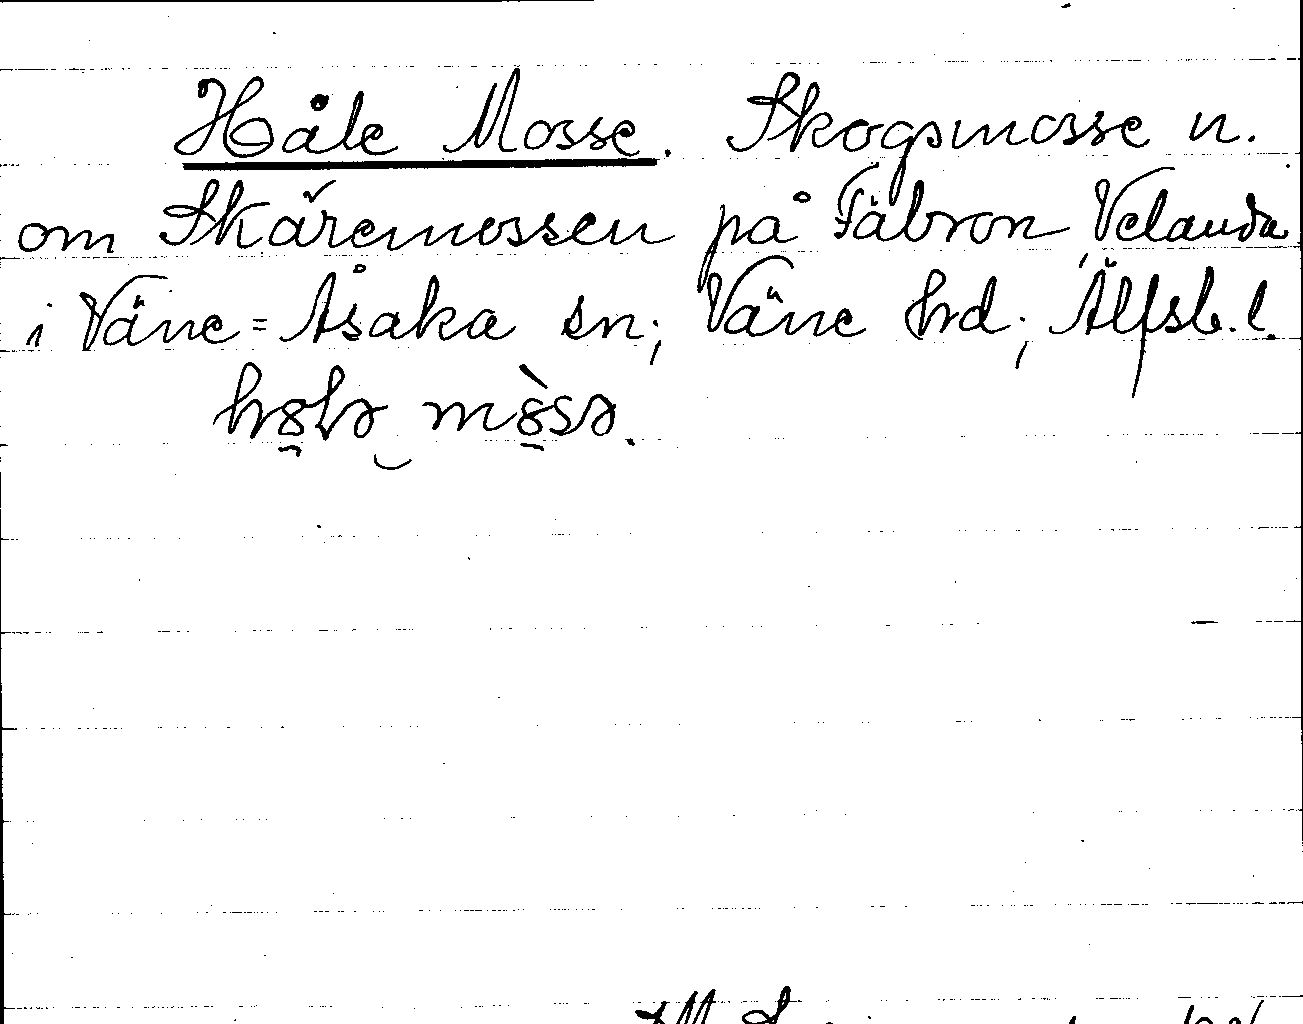 Håle Mosse. Skogsmosse n.
om Skäremossen på Fäbron, Velanda
i Väne=Åsaka sn; Väne hrd; Älfsb. l.